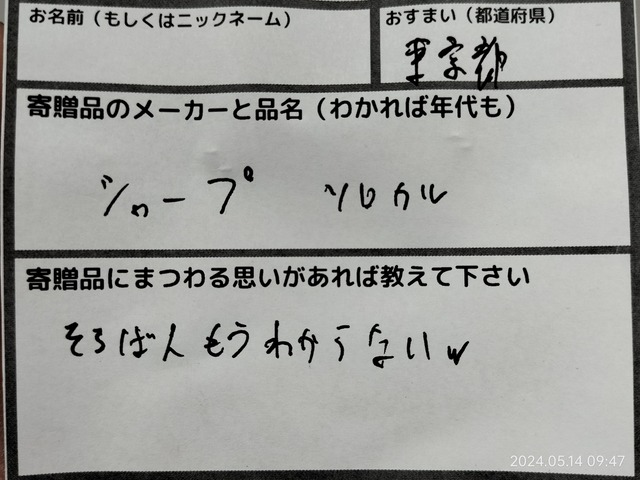 お名前（もしくはニックネーム）
おすまい（都道府県）
東京都
寄贈品のメーカーと品名（わかれば年代も）
シャープ ソロカル
寄贈品にまつわる思いがあれば教えて下さい
そろばんもうわからないw
2024.05.14 09:47